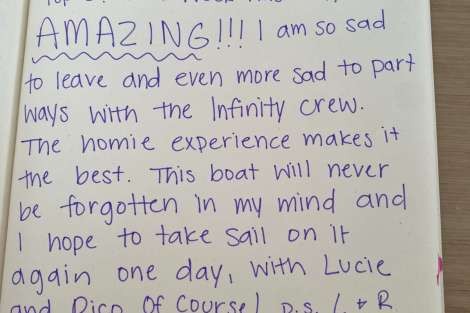 AMAZING!!! I am so sad
to leave and even more sad to part
ways with the Infinity crew.
The homie experience makes it
the best. This boat will never
be forgotten in my mind and
I hope to take sail on it
again one day, with Lucie
and Of Course! P.S. L + R